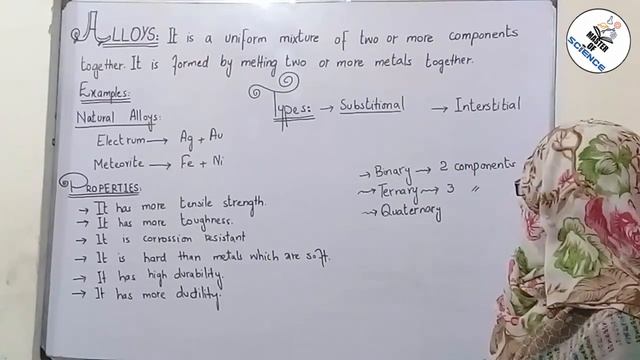 ALLOYS: It is a uniform mixture of two or more components
together. It is formed by melting two or more metals together.
Examples:
Types: → Substitional → Interstitial
Natural Alloys:
Electrum → Ag + Au
Meteorite → Fe + Ni
→ Binary → 2 components
→ Ternary → 3 "
→ Quaternary
PROPERTIES:
→ It has more tensile strength.
→ It has more toughness.
→ It is corrossion resistant
→ It is hard than metals which are soft.
→ It has high durability.
→ It has more ductility.
MASTER
OF
SCIENCE